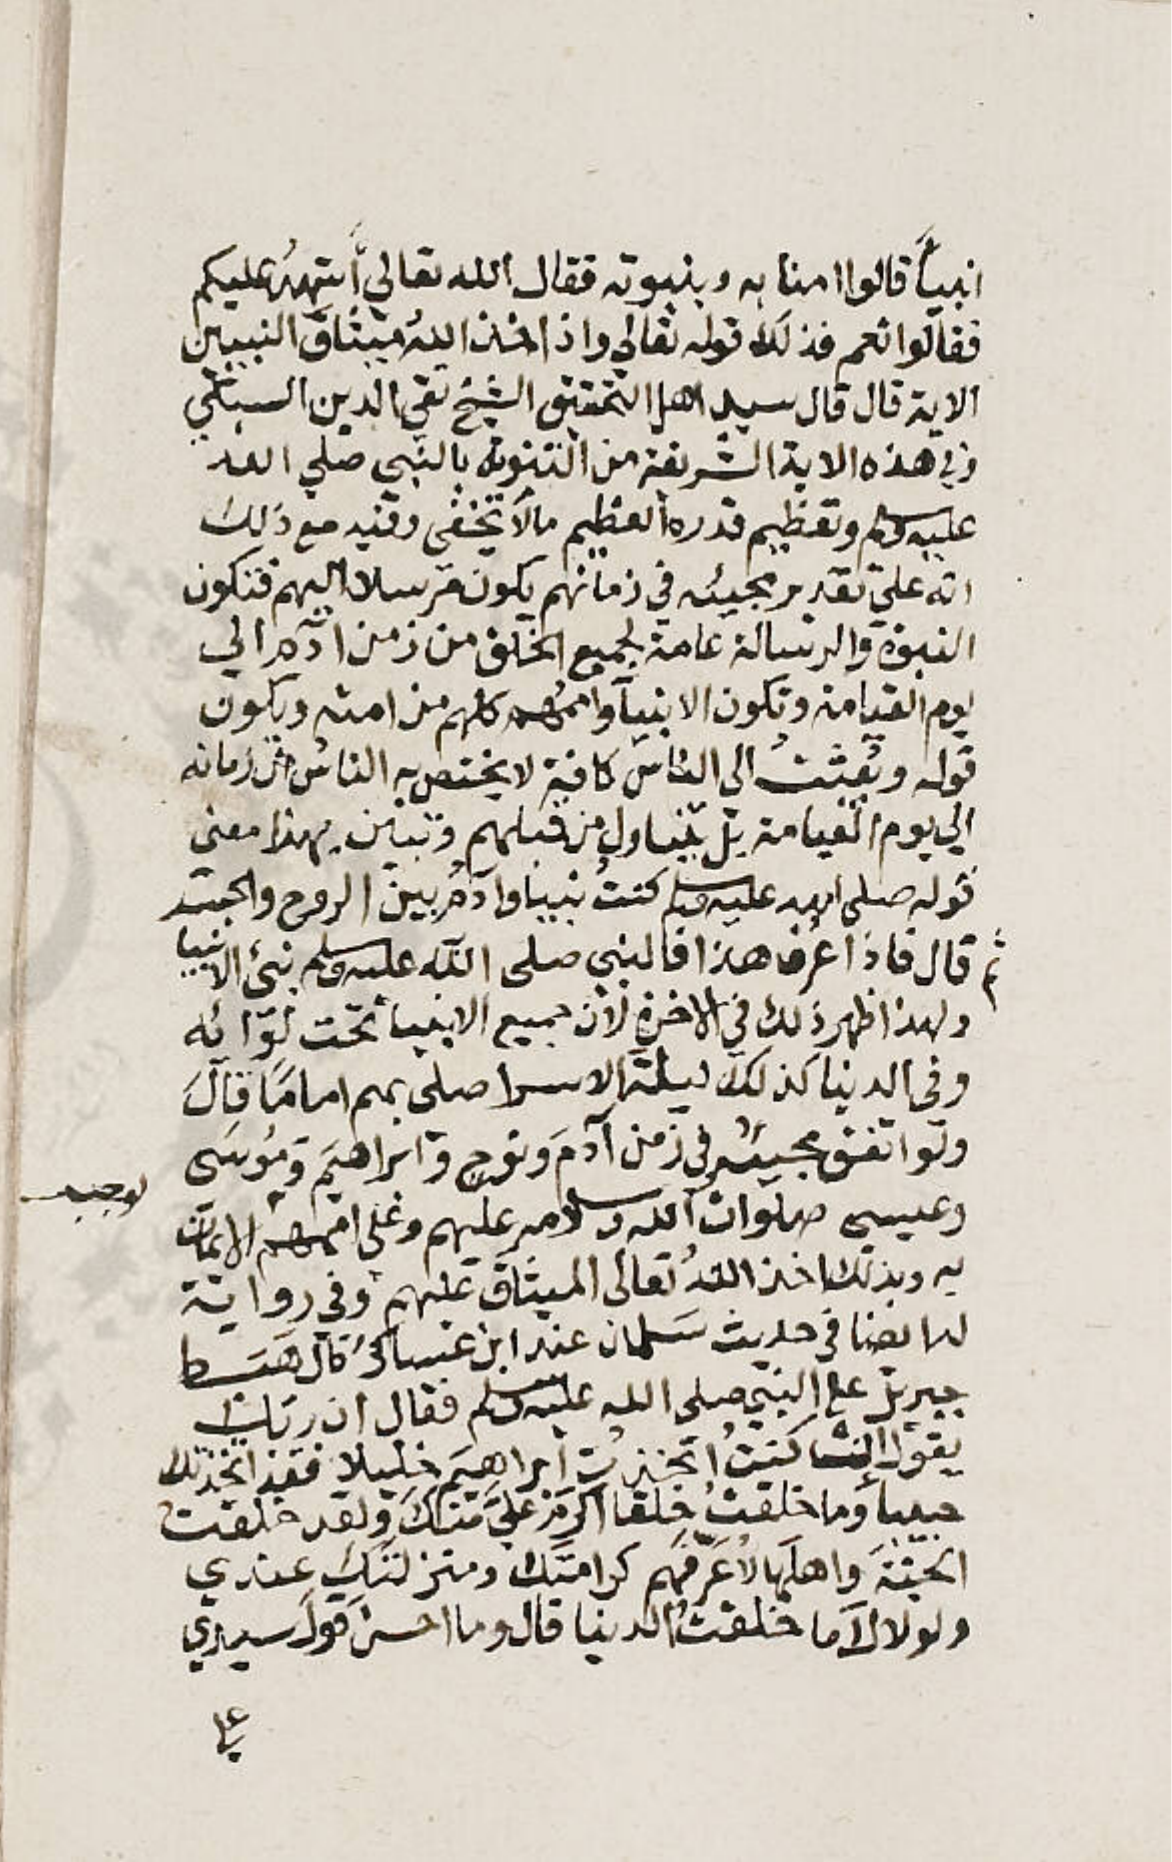 انبياً قالوا امنا به وبنبوته فقال الله تعالى أشهد عليكم
فقالوا نعم فذلك قوله تعالى واذ اخذ اللهُ ميثاق النبيين
الاية قال قال سيد اهل التحقيق الشيخ تقي الدين السبكي
وفي هذه الاية الشريفة من التنويه بالنبي صلى الله
عليه وسلم وتعظيم قدره العظيم مالا يخفى وفيه مع ذلك
انه على تقدير مجيئه في زمانهم يكون مرسلا اليهم فتكون
النبوة والرسالة عامة لجميع الخلق من زمن ادم الى
يوم القيامة وتكون الانبيآ واممهم كلهم من امته ويكون
قوله وبُعثتُ الى الناس كافة لا يختص به الناسُ من زمانه
الى يوم القيامة بل يتناول من قبلهم وتبين بهذا معنى
قوله صلى الله عليه وسلم كنتُ نبيا وآدمُ بين الروح والجسد
ثم قال فاذا عرف هذا فالنبي صلى الله عليه وسلم نبئ الانبيا
ولهذا ظهر ذلك في الاخرة لان جميع الانبيا تحت لوائه
وفى الدينا كذلك ليلة الاسرا صلى بهم اماما قال
ولو اتفق مجيئه في زمن آدمَ ونوح وابراهيمَ وموسى
لوجب
وعيسى صلوات الله وسلامه عليهم وعلى اممهم الايمان
به وبذلك اخذ اللهُ تعالى الميثاق عليهم وفي رواية
له ايضا في حديث سلمان عند ابن عساكر قال هبط
جبريل على النبي صلى الله عليه وسلم فقال ان ربك
يقول إنْ كنتُ اتخذتُ ابراهيمَ خليلا فقد اتخذتك
حبيباً وما خلقتُ خلقا اكرمَ عليَّ منك ولقد خلقتُ
الجنةَ واهلَها لأعرّفهم كرامتك ومنزلتك عندي
ولولاك ما خلقتُ الدنيا قال وما احسن قول سيدي
على